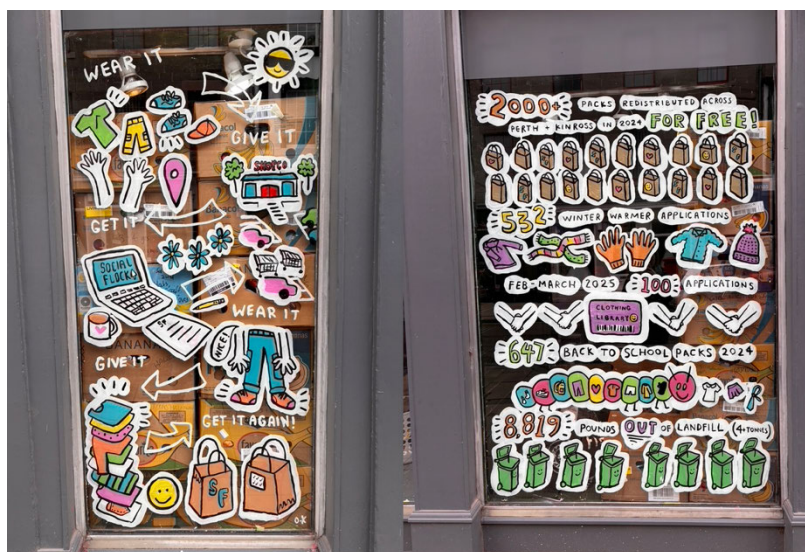 WEAR IT
GIVE IT
SHOPCO
GET IT
SOCIAL
FLOCK
WEAR IT
SF
NICE!
GIVE IT
GET IT AGAIN!
SF
2000+ PACKS REDISTRIBUTED ACROSS
PERTH + KINROSS IN 2024 FOR FREE!
532 WINTER WARMER APPLICATIONS
FEB-MARCH 2025 100 APPLICATIONS
CLOTHING
LIBRARY
647 BACK TO SCHOOL PACKS 2024
8,819 POUNDS OUT OF LANDFILL (4+TONNES)